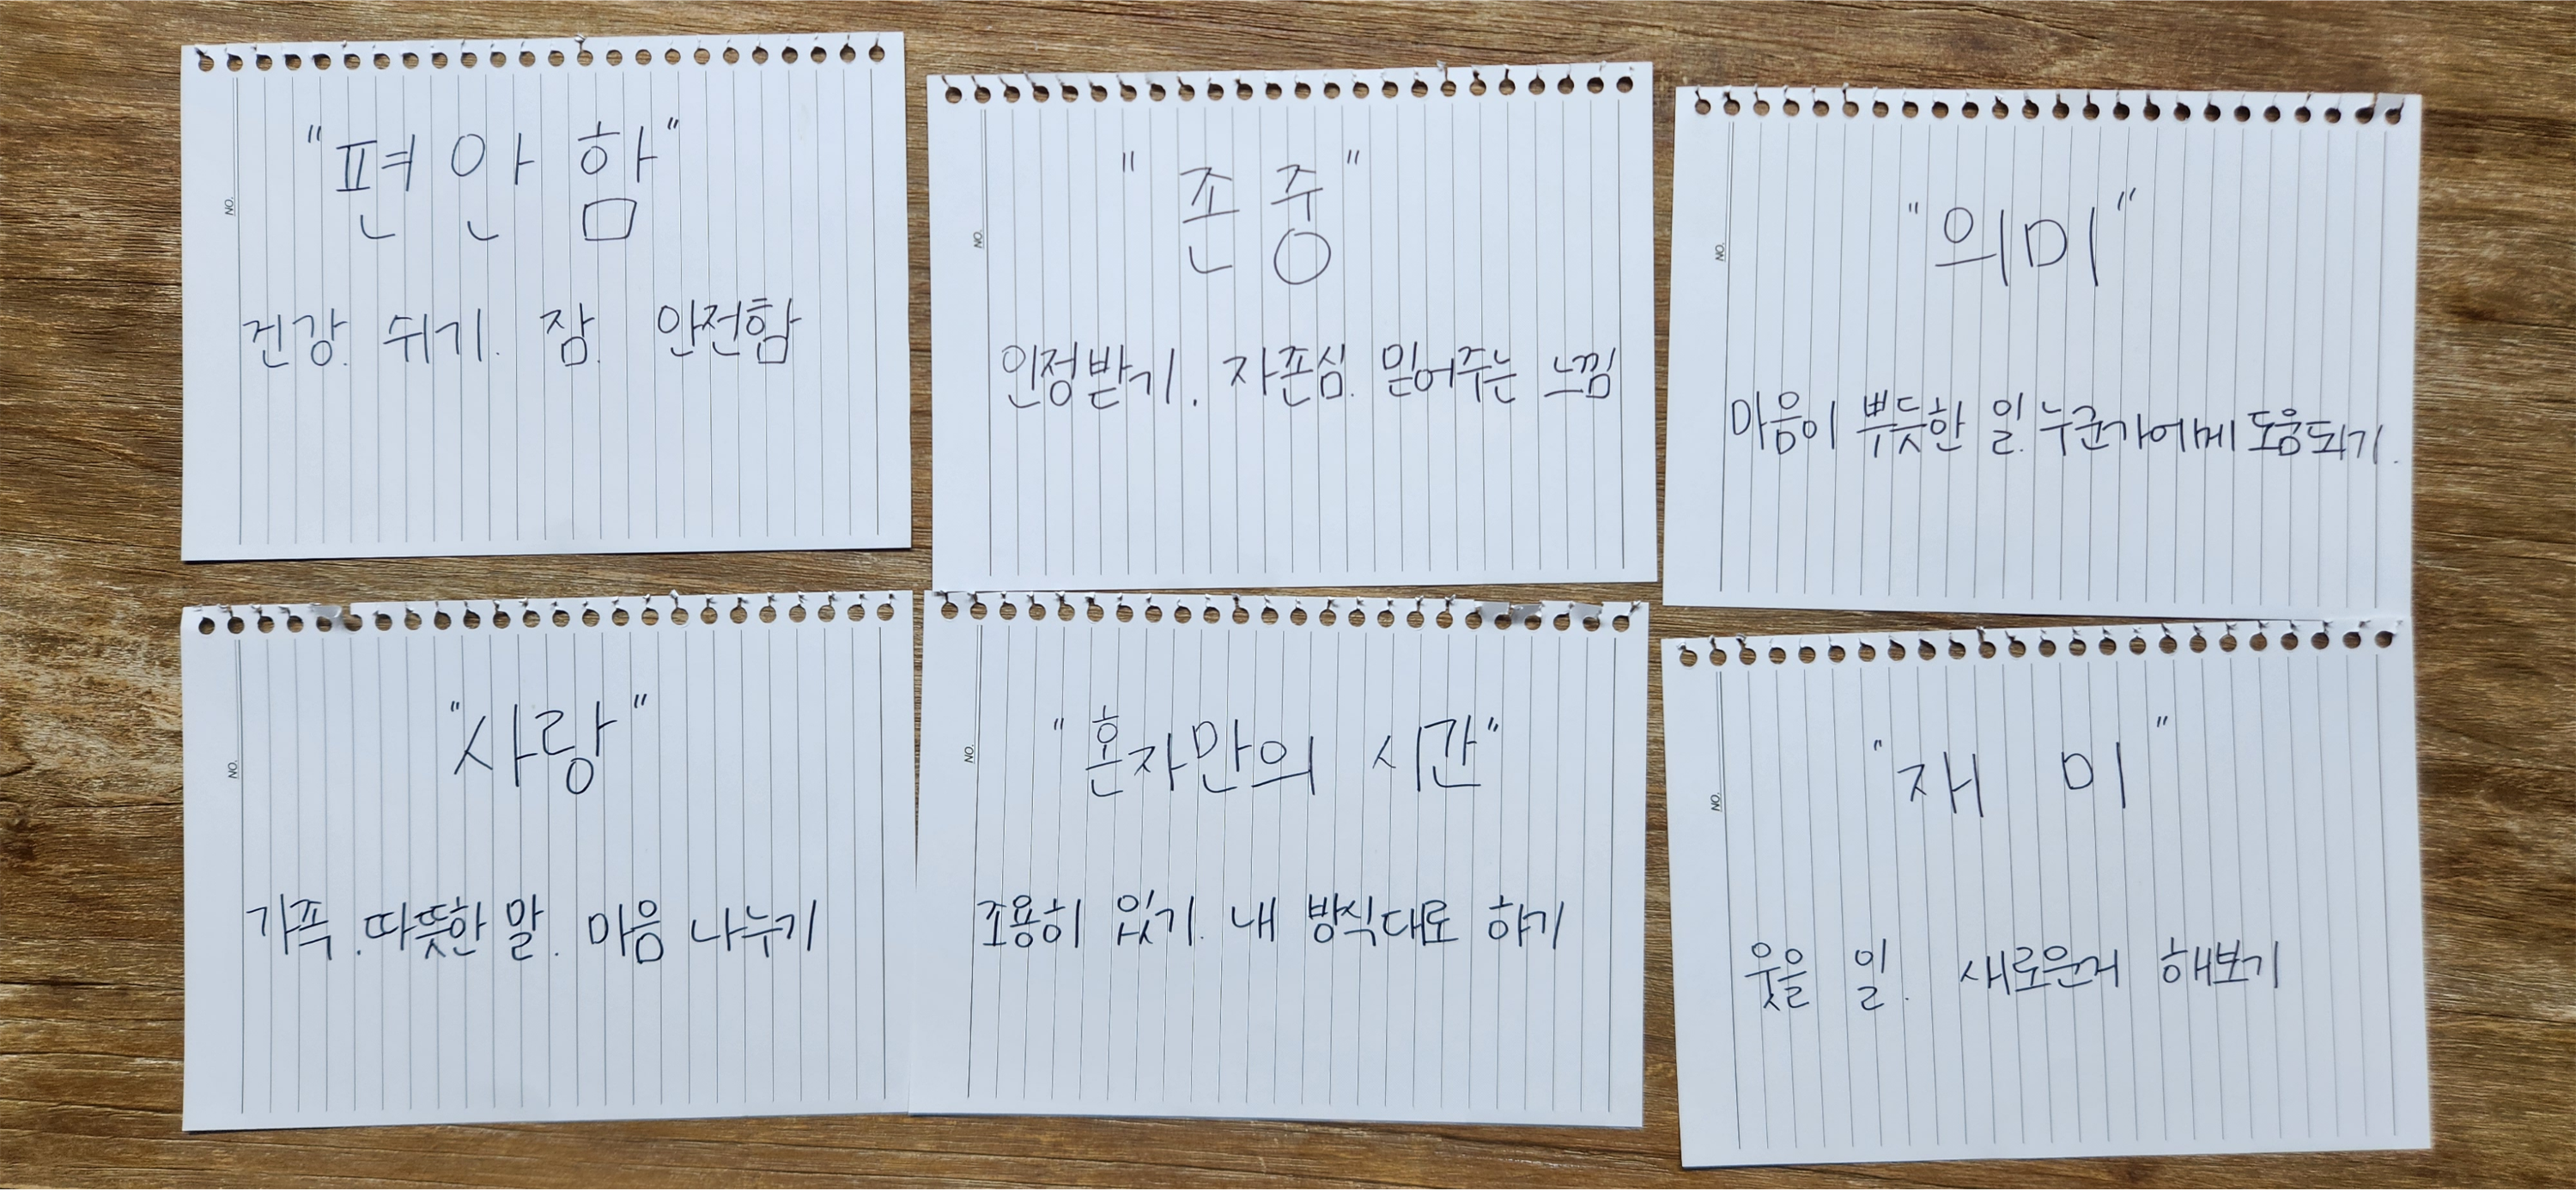 NO.
"편안함"
건강. 쉬기. 잠. 안전함
NO.
"존중"
인정받기. 자존심. 믿어주는 느낌
NO.
"의미"
마음이 뿌듯한 일. 누군가에게 도움되기.
NO.
"사랑"
가족. 따뜻한 말. 마음 나누기
NO.
"혼자만의 시간"
조용히 있기. 내 방식대로 하기
NO.
"재미"
웃을 일. 새로운거 해보기